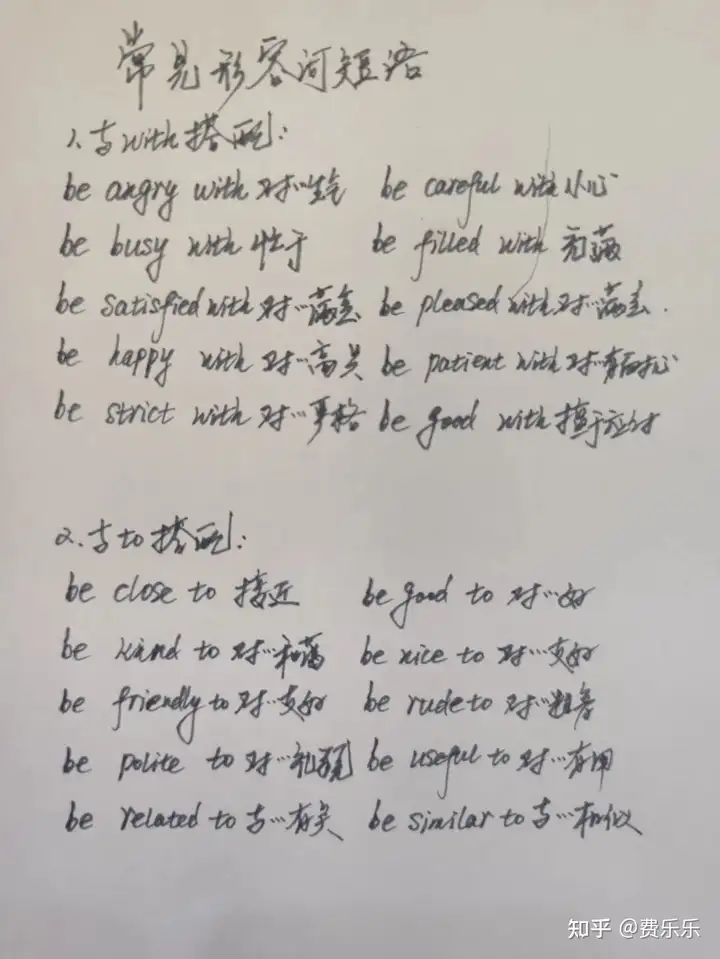 常见形容词短语
1、与with搭配:
be angry with 对…生气 be careful with 小心
be busy with 忙于 be filled with 充满
be satisfied with 对…满意 be pleased with 对…满意.
be happy with 对…高兴 be patient with 对…有耐心
be strict with 对…严格 be good with 擅于应对
2.与to搭配:
be close to 接近 be good to 对…好
be kind to 对…和蔼 be nice to 对…友好
be friendly to 对…友好 be rude to 对…粗鲁
be polite to 对…礼貌 be useful to 对…有用
be related to 与…有关 be similar to 与…相似
知乎 @费乐乐